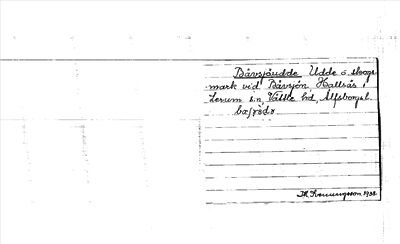 Båvsjöudde Udde o. skogs-
mark vid Båvsjön, Hallsås i
Lerum s:n, Vättle hd, Älfsborgs l.
Hj. Henningsson 1932